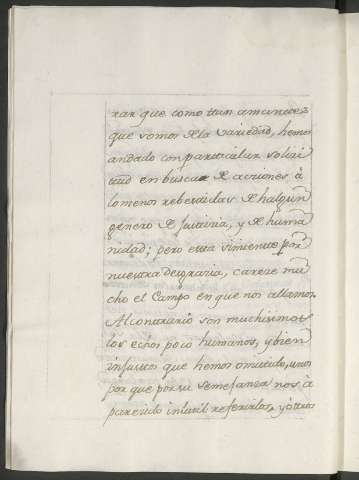 rar que como tan amantes
que somos de la variedad, hemos
andado con particular solici
tud en busca de acciones à
lo menos rebestidas de halgun
genero de justicia, y de huma
nidad; pero esta simiente por
nuestra desgracia, carece mu
cho el Campo en que nos allamos.
Al contrario son muchisimos
los echos poco humanos, y bien
injustos que hemos omitido, unos
por que por su semejanza nos à
parecido inhutil referirlos, y otros